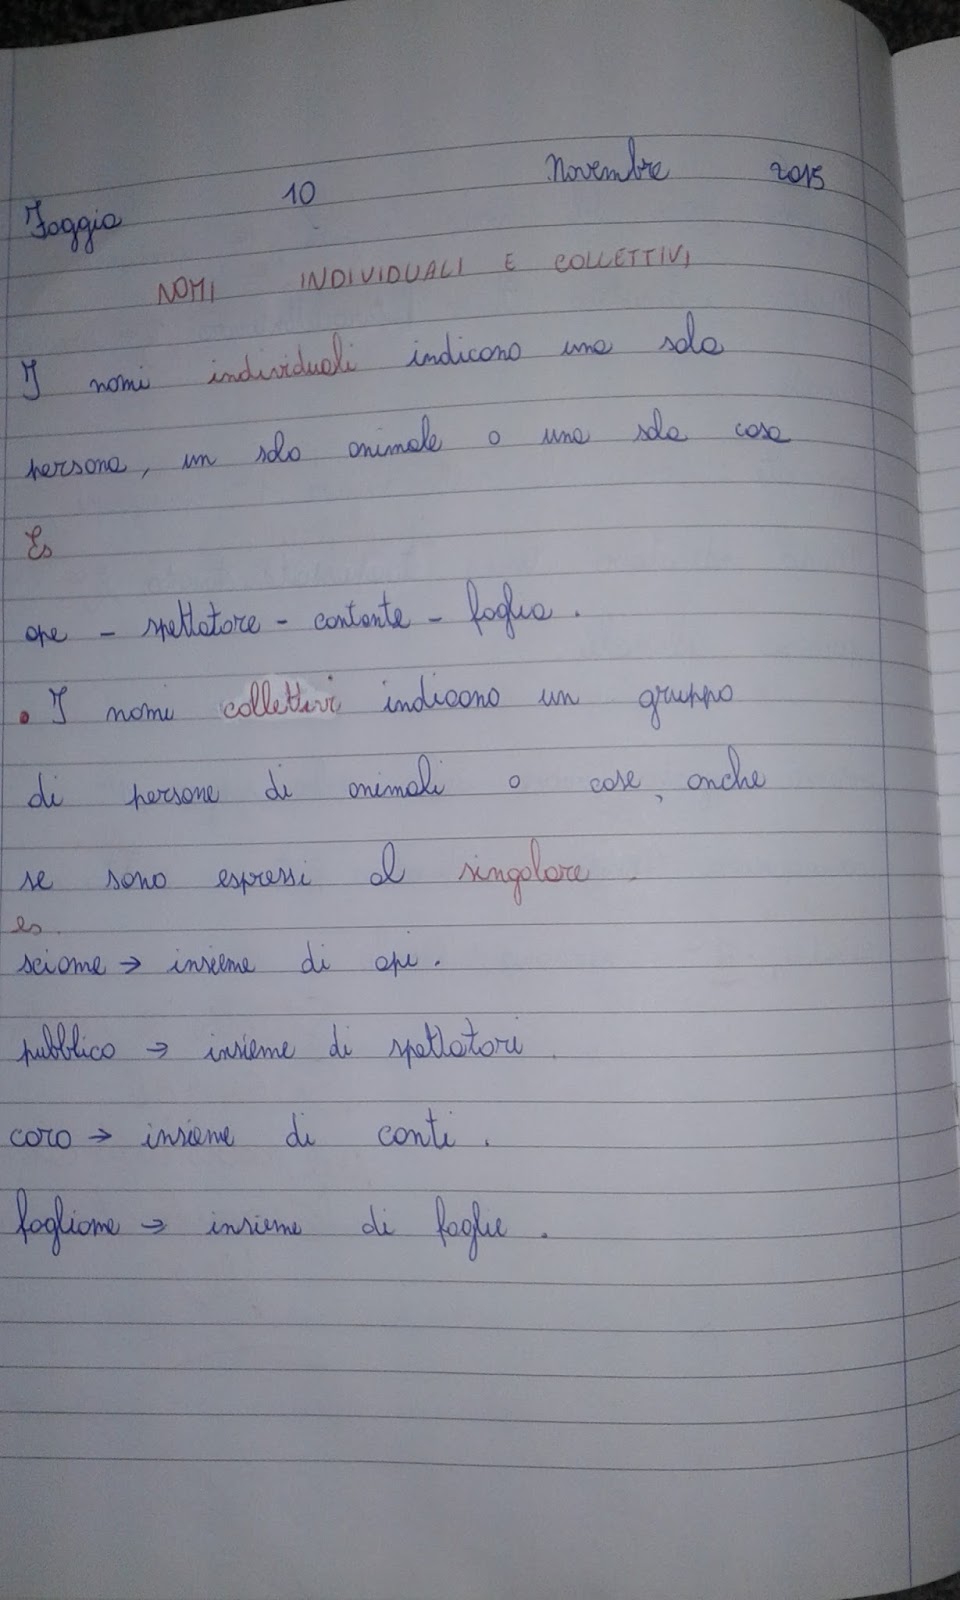 Foggia 10 Novembre 2015
NOMI INDIVIDUALI E COLLETTIVI
I nomi individuali indicano una sola
persona, un solo animale o una sola cosa
Es
ape - spettatore - cantante - foglia.
• I nomi collettivi indicano un gruppo
di persone di animali o cose, anche
se sono espressi al singolare.
es.
sciame → insieme di api.
pubblico → insieme di spettatori.
coro → insieme di canti.
fogliame → insieme di foglie.